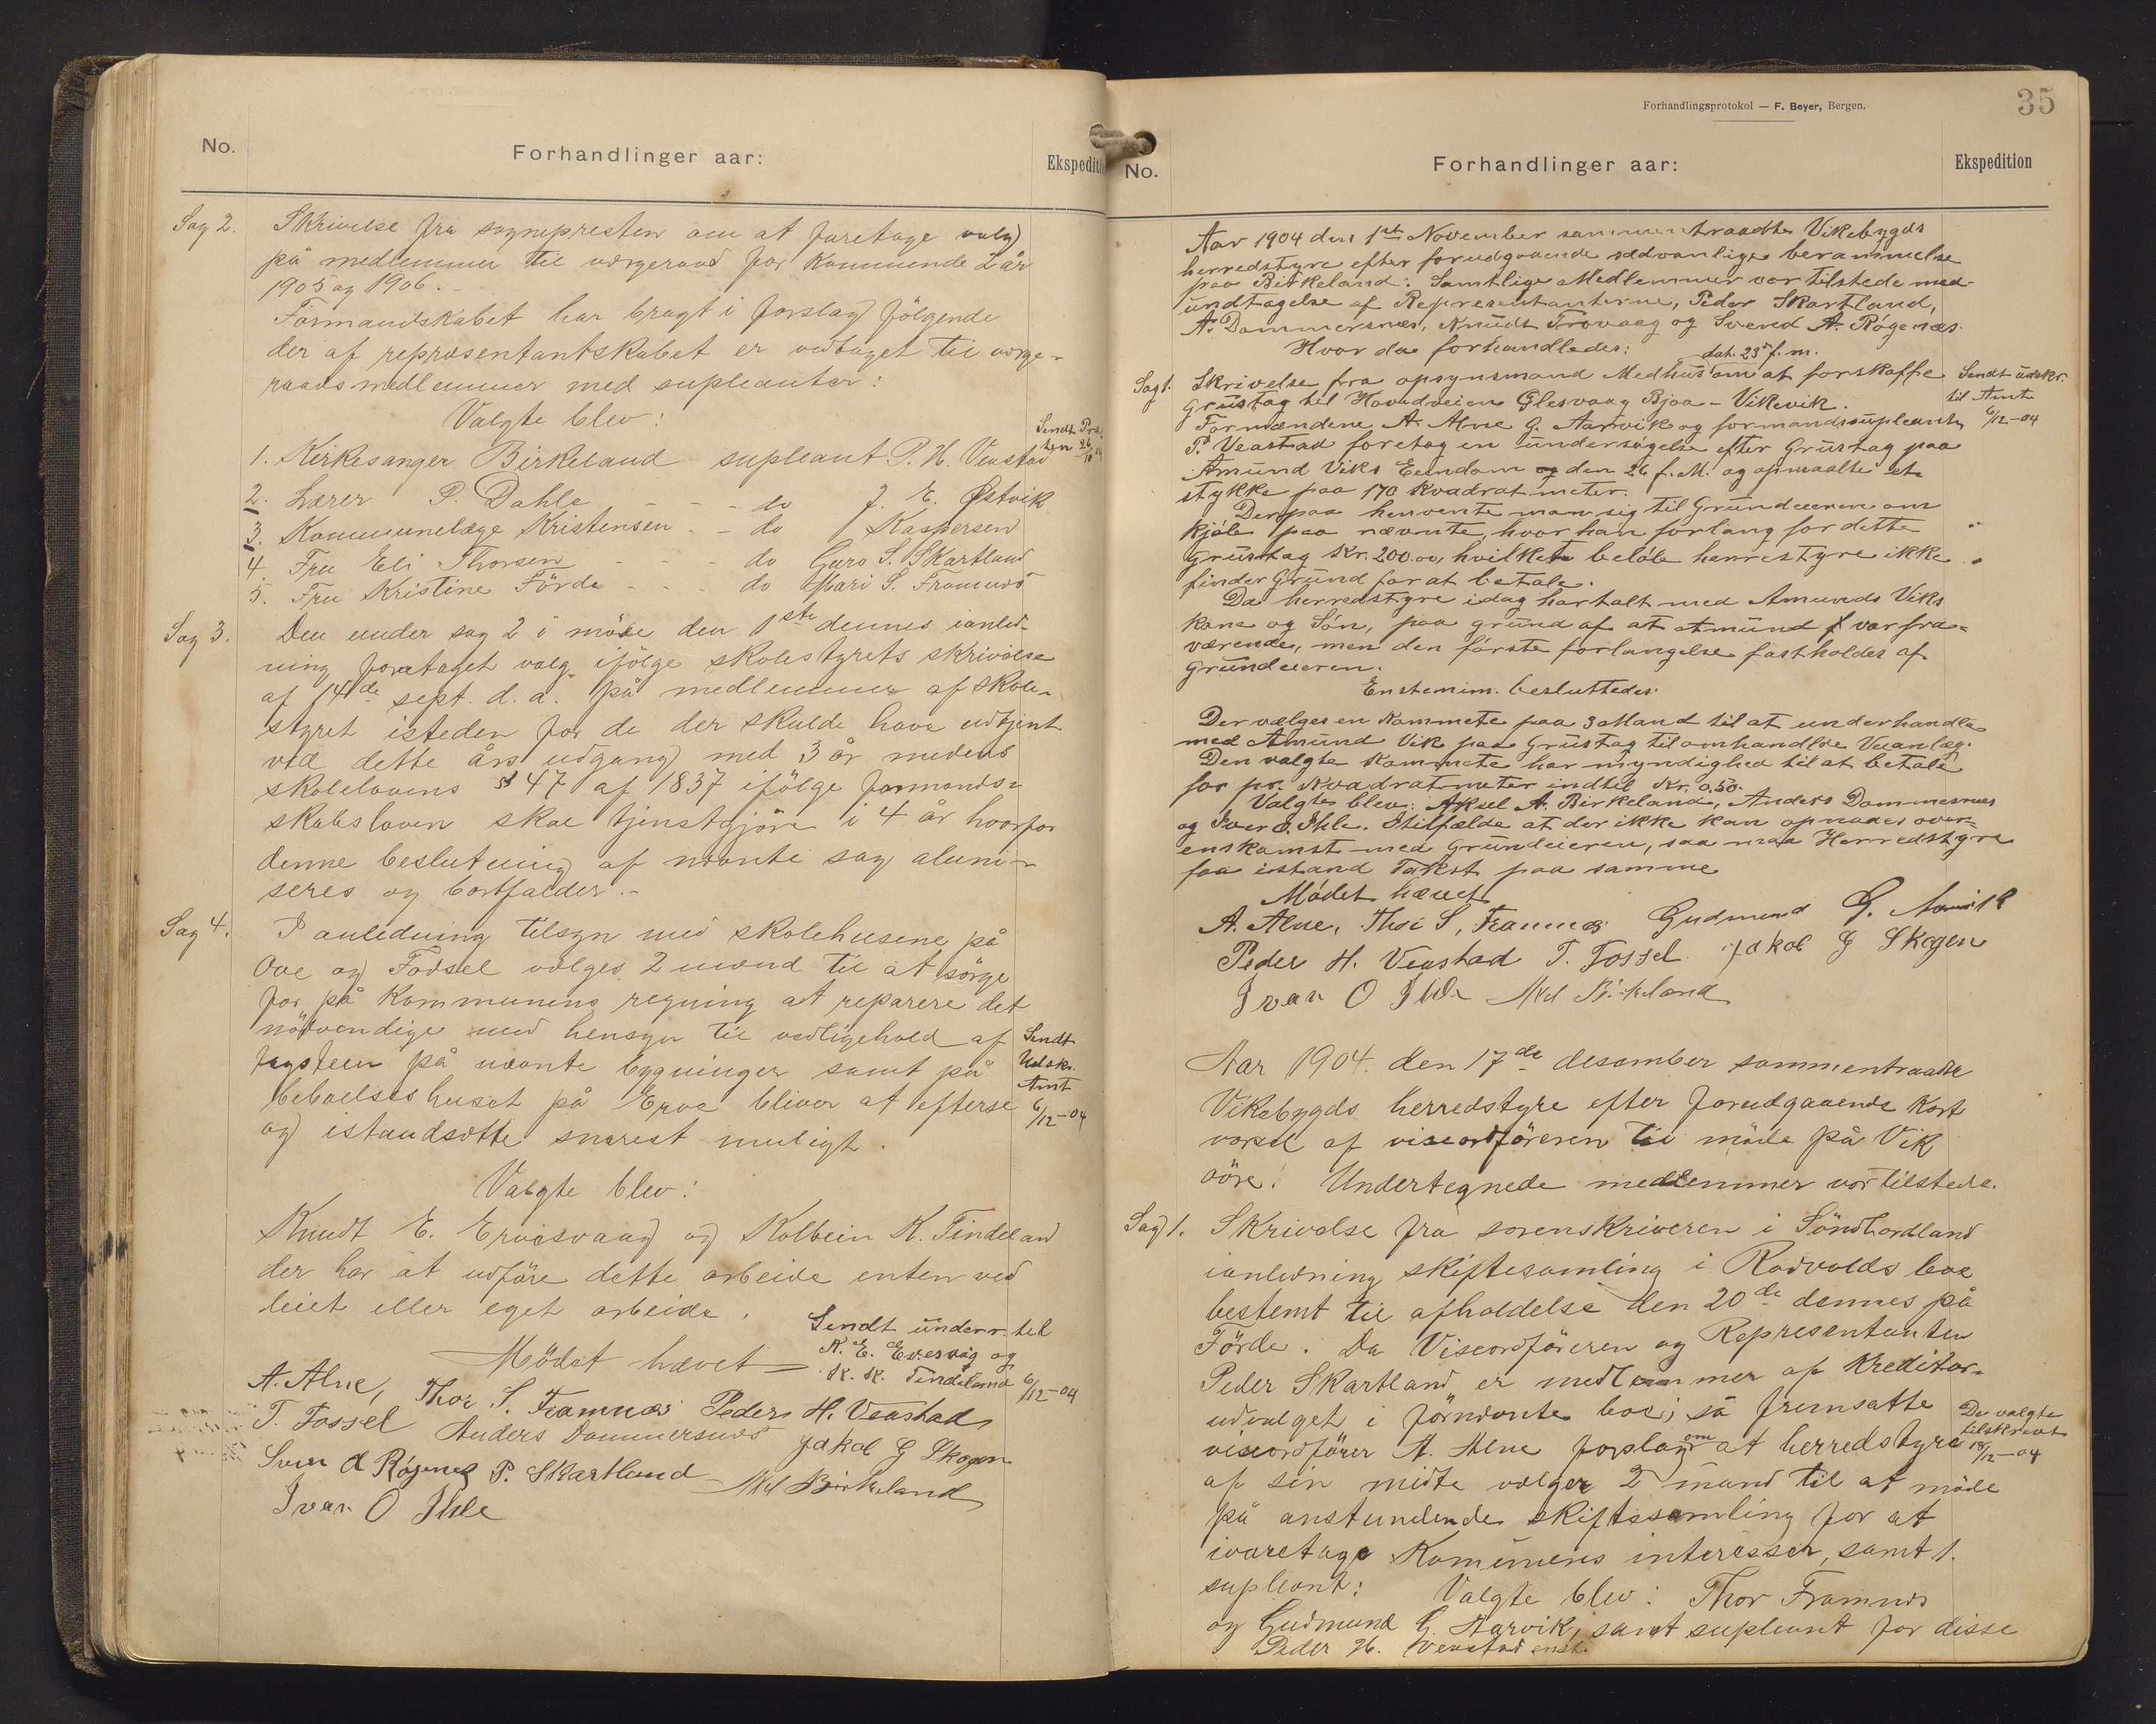 No.
Forhandlinger aar:
Ekspediti
Sag 2. Skrivelse fra sognepresten om at foretage valg
på medlemmer til værgeraad for kommende 2 år
1905 og 1906.
Formandskabet har bragt i forslag følgende
der af repræsentantskabet er vedtaget til værge-
raadsmedlemmer med supleanter:
Valgte blev:
Sendt Præ
1. Kirkesanger Birkeland supleant P. H. Veastad
2. Lærer P. Dahle - - - do J. E. Østvik
3. Kommunelæge Kristensen - - do Kaspersen
4. Fru Eli Thorsen - - - do Guro S. Skartland
5. Fru Kristine Förde - - - do Mari S. Framnæs
Sag 3. Den under sag 2 i möde den 1ste dennes ianled-
ning foretaget valg ifölge skolestyrets skrivelse
af 14de sept. d. a. på medlemmer af skole-
styret isteden for de der skulde have udtjent
ved dette års udgang med 3 år medens
skolelovens § 47 af 1837 ifölge formands-
skabsloven skal tjenstgjöre i 4 år hvorfor
denne beslutning af nævnte sag aluni-
seres og bortfalder.-
Sag 4. I anledning tilsyn med skolehusene på
Ove og Fodsel vælges 2 mænd til at sörge
for på kommunens regning at reparere det
nödvendige med hensyn til vedligehold af
på nævnte bygninger samt på
beboelseshuset på Erve bliver at efterse
og istandsætte snarest muligt.
Sendt
Udskr.
Amt
6/12-04
Valgte blev:
Knudt E. Ervesvaag og Kolbein K. Tindeland
der har at udföre dette arbeide enten ved
leiet eller eget arbeide.
Sendt underr. til
K. E. Ervesvåg og
K. K. Tindeland 6/12-04
Mödet hævet
A. Alne, Thor S. Framnæs Peder H. Veastad
T. Fossel Anders Dommersnæs Jakob G Skogen
Sven A Røgenes P. Skartland Aksel Birkeland
Ivar O Ihle
Forhandlingsprotokol — F. Beyer, Bergen.
35
No.
Forhandlinger aar:
Ekspedition
Aar 1904 den 1ste November sammentraadte Vikebygds
herredstyre efter forudgaaende sædvanlige berammelse
paa Birkeland. Samtlige Medlemmer var tilstede med
undtagelse af Representanterne, Peder Skartland,
A. Dommersnæs, Knudt Trovaag og Svend A. Røgenæs.
Hvor da forhandledes:
dat. 23de f. m.
Sag 1. Skrivelse fra opsynsmand Medhus om at forskaffe
Grustag til Hovedveien Ølesvaag Bjoa - Vikevik.
Formændene A. Alne G. Aarvik og formandssupleanten
P. Veastad foretog en undersøgelse efter Grustag paa
Amund Viks Eiendom og den 26 f. M. og opmaalte et
stykke paa 170 Kvadrat meter.
Sendt udskr.
til Amt
6/12-04
Derpaa henvente man sig til Grundeieren om
kjøb paa nævnte, hvor han forlang for dette
Grustag Kr. 200.00, hvilket beløb herrestyre ikke
finder Grund for at betale.
Da herredstyre idag har talt med Amunds Viks
Kone og Søn, paa grund af at Amund f var fra-
værende, men den første forlangelse fastholdes af
Grundeieren.
Enstemim. besluttedes:
Der vælges en Kommete paa 3 Mand til at underhandle
med Amund Vik paa Grustag til omhandlede Veianlæg.
Den valgte Kommete har myndighed til at betale
for pr. Kvadratmeter indtil Kr. 0,50.
Valgte blev: Aksel A. Birkeland, Anders Dommesnes
og Iver O. Ihle. I tilfælde at der ikke kan opnaaes over-
enskomst med Grundeieren, saa maa Herredstyre
faa istand Takst paa samme
Mødet hævet
A. Alne, Thor S, Framnæs Gudmund G. Aarvik
Peder H. Veastad T. Fossel Jakob G Skogen
Ivar O Ihle Aksel Birkeland
Aar 1904 den 17de desember sammentraadte
Vikebygds herredstyre efter forudgaaende kort
varsel af viseordföreren til möde på Vik
söre. Undertegnede medlemmer var tilstede.
Sag 1. Skrivelse fra sorenskriveren i Söndhordland
ianledning skiftesamling i Rødvolds boe
bestemt til afholdelse den 20de dennes på
Förde. Da Viseordföreren og Representanten
Peder Skartland er medlemmer af kreditor-
udvalget i förnævnte boe; så fremsatte
viseordförer A. Alne forslag om at herredstyre
af sin midte vælger 2 mænd til at möde
på anstundende skiftesamling for at
ivaretage Kommunens interesser, samt 1.
supleant:
De valgte
tilskrevet
18/12-04
Valgte blev: Thor Framnæs
og Gudmund G. Aarvik, samt supleant for disse
Peder H. Veastad enst.